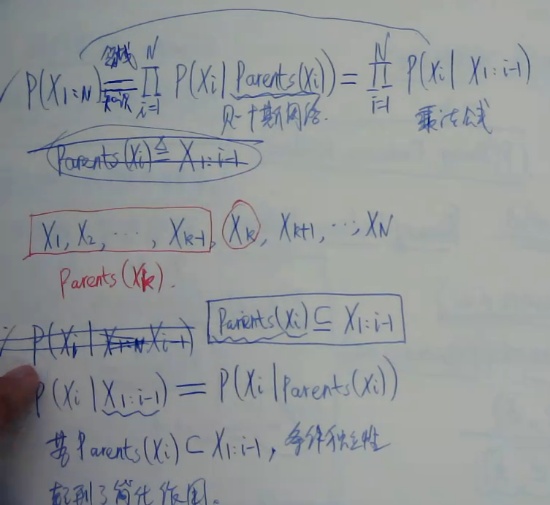 P(X1:N) = ∏_{i=1}^{N} P(Xi | Parents(Xi)) = ∏_{i=1}^{N} P(Xi | X1:i-1)
贝叶斯网络. 乘法公式
Parents(Xi) ≜ X1:i-1
X1, X2, ..., Xk-1, Xk, Xk+1, ..., XN
Parents(Xk).
P(Xi | X1:N Xi-1) Parents(Xi) ⊆ X1:i-1
P(Xi | X1:i-1) = P(Xi | Parents(Xi))
若 Parents(Xi) ⊂ X1:i-1, 条件独立性
起到了简化作用.